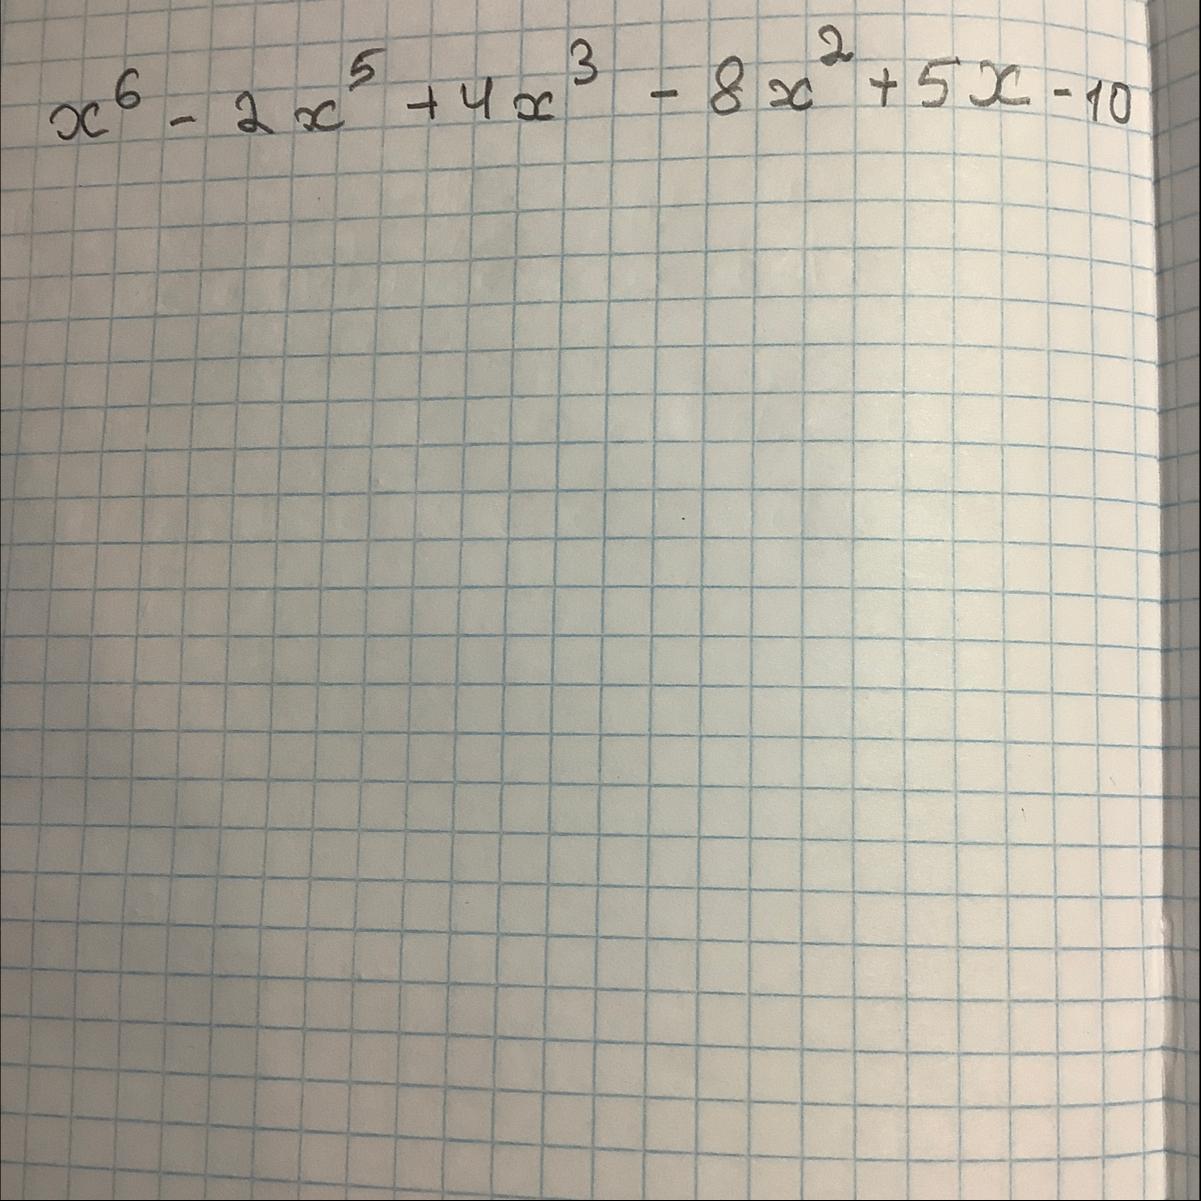 x⁶ - 2x⁵ + 4x³ - 8x² + 5x - 10